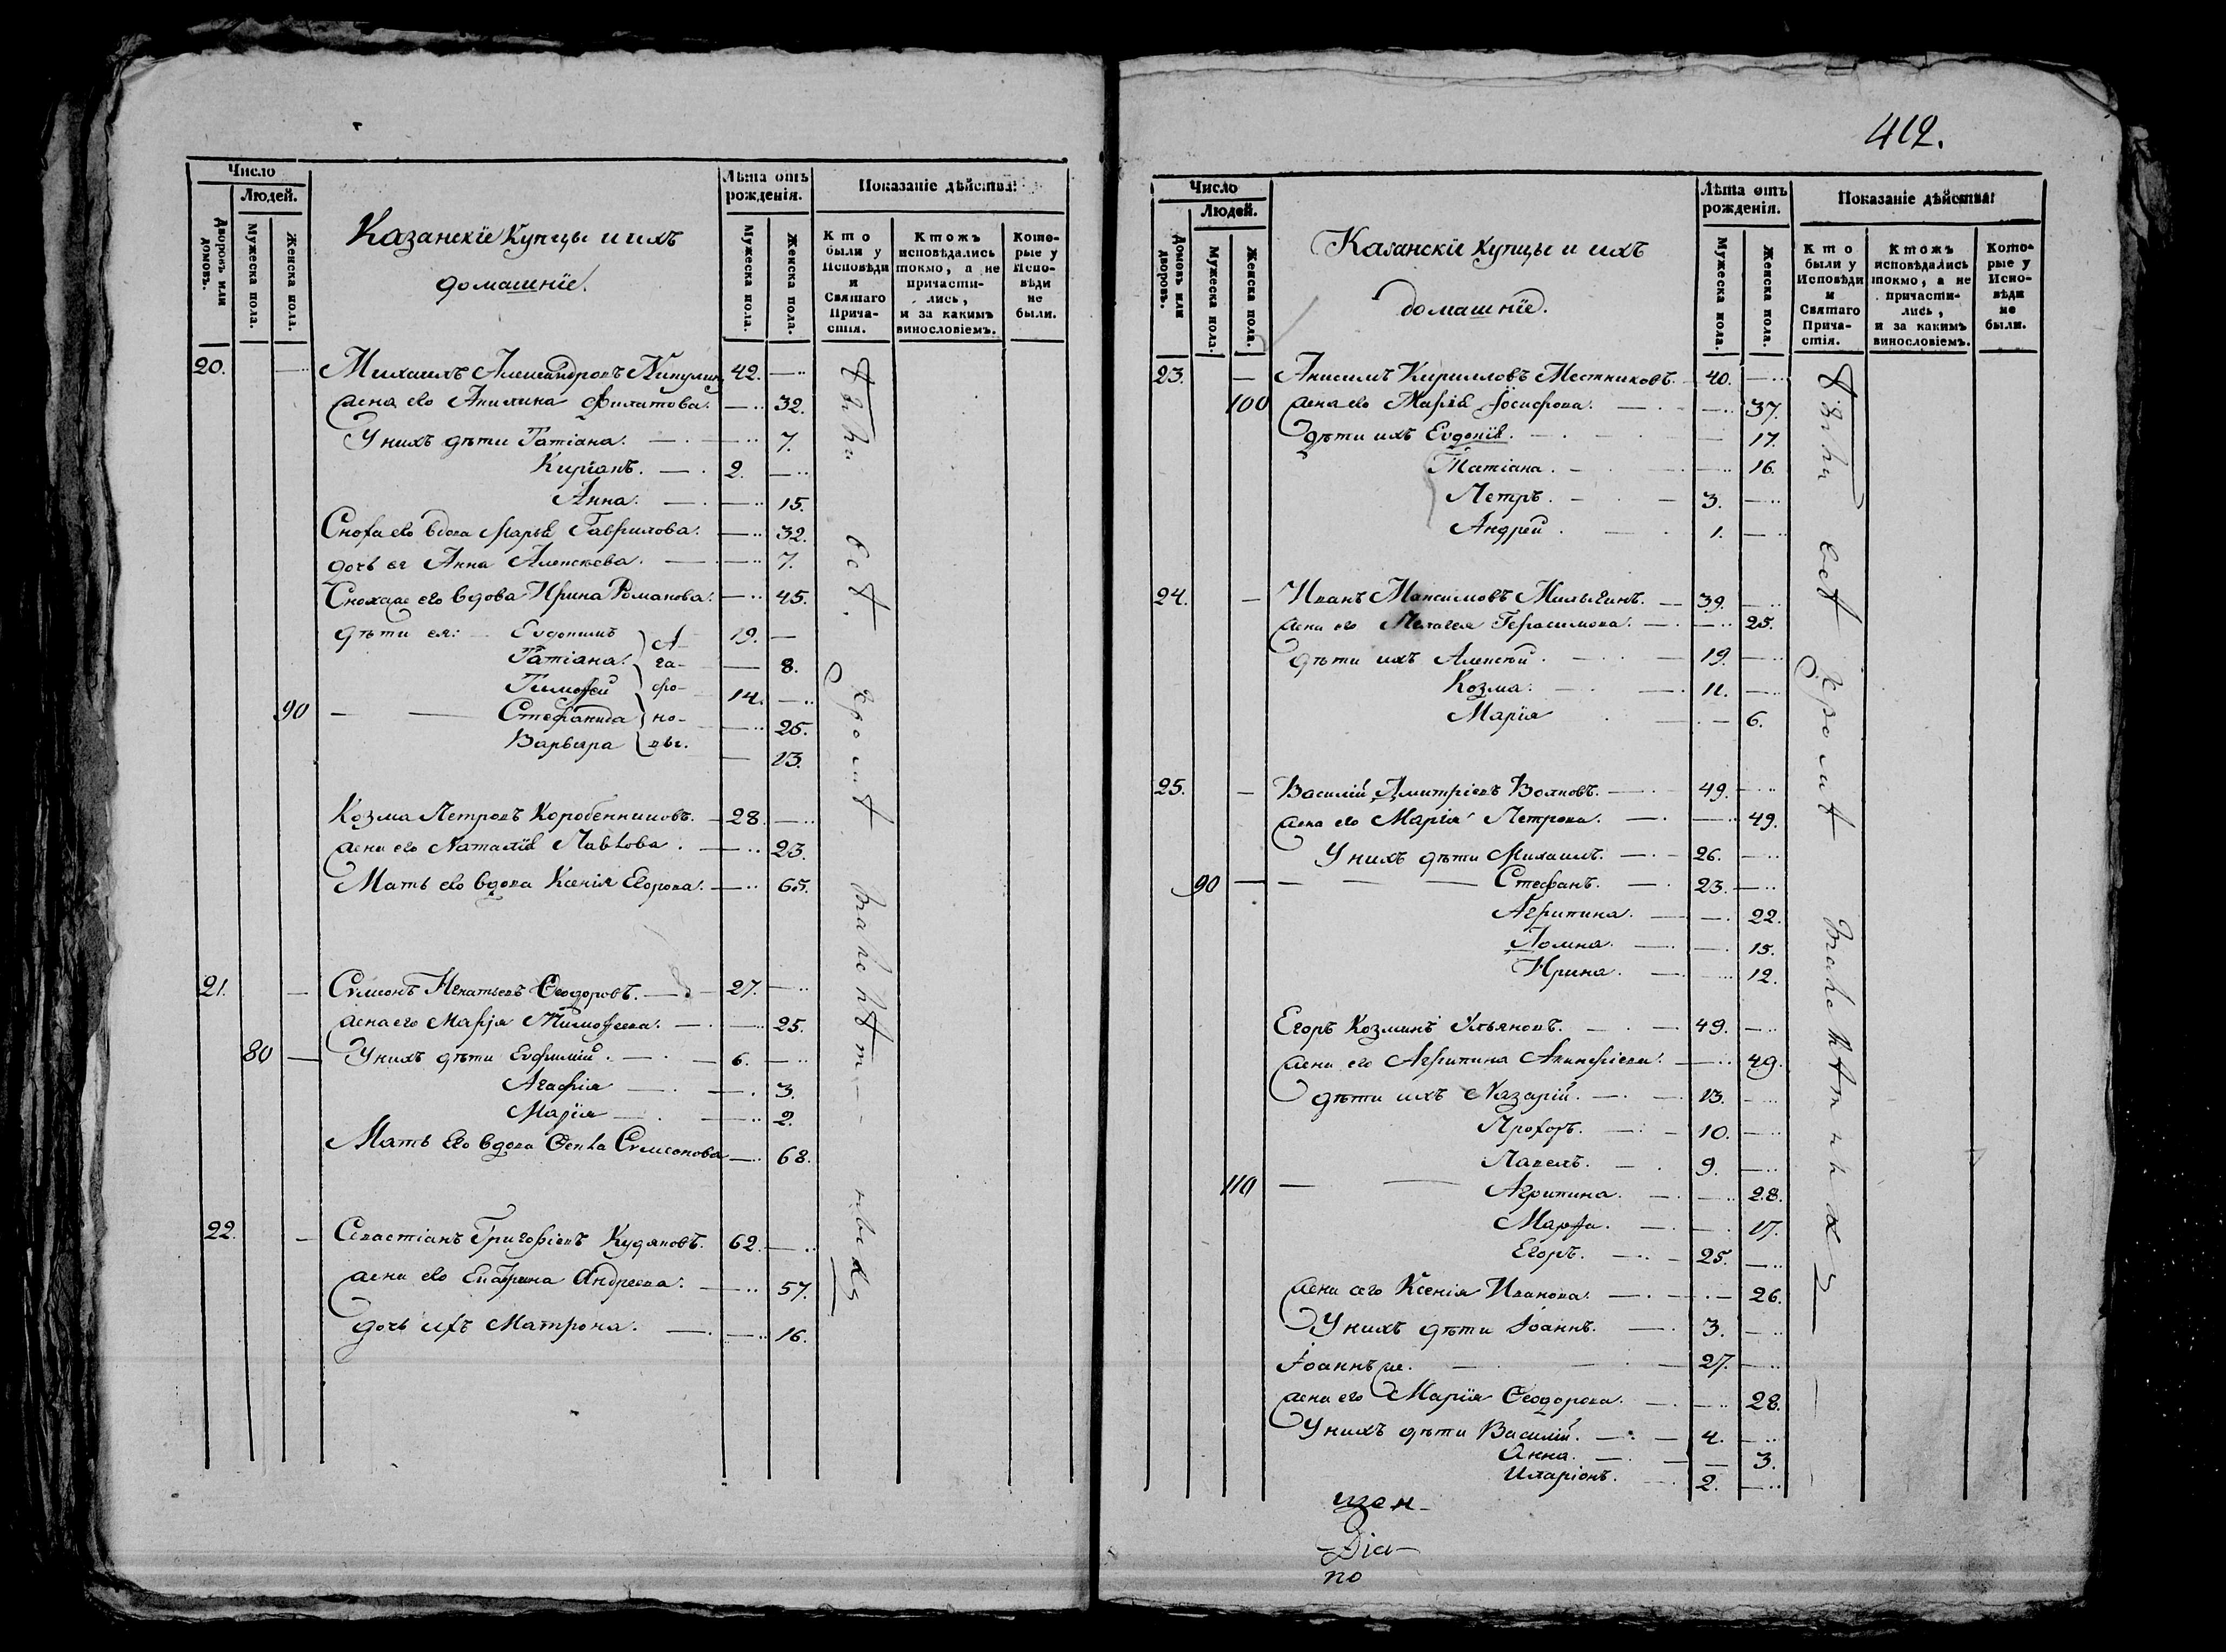 Число
Людей.
Дворовъ или домовъ.
Мужеска пола.
Женска пола.
Казанскіе Купцы и ихъ
домашніе.
Лѣта отъ
рожденія.
Мужеска пола.
Женска пола.
Показаніе дѣйства:
Кто
были у
Исповѣди
и
Святаго
Прича-
стія.
Ктожъ
исповѣдались
токмо, а не
причасти-
лись,
и за какимъ
винословіемъ.
Кото-
рые у
Испо-
вѣди
не
были.
20. Михаилъ Александровъ 42.
жена его Акилина Филатова. 32.
У нихъ дѣти Татіана. 7.
Киріанъ. 2.
Анна. 15.
Сноха его вдова Марья Гаврилова. 32.
дочь ея Анна Алексѣева. 7.
Сноха же его вдова Ирина Романова. 45.
дѣти ея: Евдокимъ 19.
Татіана. 8.
Тимофей 14.
90 Стефанида 25.
Варвара 23.
А-
га-
фо-
но-
вы.
Козма Петровъ Коробенниковъ. 28.
жена его Наталія Павлова. 23.
Мать его вдова Ксенія Егорова. 65.
21. Симеонъ Игнатьевъ Ѳеодоровъ. 27.
жена его Марія Тимофеева. 25.
80 У нихъ дѣти Евфимій. 6.
Агафія 3.
Марія 2.
Мать его вдова Ѳекла Симеонова 68.
22. Севастіанъ Григоріевъ Кудяковъ. 62.
жена его Екатерина Андреева. 57.
дочь ихъ Матрона. 16.
412.
Число
Людей.
Домовъ или дворовъ.
Мужеска пола.
Женска пола.
Казанскіе Купцы и ихъ
домашніе.
Лѣта отъ
рожденія.
Мужеска пола.
Женска пола.
Показаніе дѣйства:
Кто
были у
Исповѣди
и
Святаго
Прича-
стія.
Ктожъ
исповѣдались
токмо, а не
причасти-
лись,
и за какимъ
винословіемъ.
Кото-
рые у
Испо-
вѣди
не
были.
23. Анисимъ Кирилловъ Местниковъ. 40.
100 жена его Марія Іосифова. 37.
дѣти ихъ Евдокія. 17.
Татіана. 16.
Петръ. 3.
Андрей. 1.
24. Иванъ Максимовъ 39.
жена его Пелагея Герасимова. 25.
дѣти ихъ Алексѣй. 19.
Козма. 11.
Марія 6.
25. Василій Дмитріевъ Волковъ. 49.
жена его Марія Петрова. 49.
У нихъ дѣти Михаилъ. 26.
90 Стефанъ. 23.
Агрипина. 22.
Домна. 15.
Ирина. 12.
Егоръ Козминъ Ульяновъ. 49.
жена его Агрипина Акинфіева. 49.
дѣти ихъ Назарій. 13.
Прохоръ. 10.
Павелъ. 9.
110 Агрипина. 28.
Марфа. 17.
Егоръ. 25.
жена сего Ксенія Иванова. 26.
У нихъ дѣти Іоаннъ. 3.
Іоаннъ же. 27.
жена его Марія Ѳеодорова. 28.
У нихъ дѣти Василій. 4.
Анна. 3.
Иларіонъ. 2.